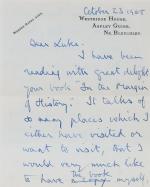 October 23 1965
Westridge House,
Aspley Guise,
Nr. Bletchley.
Dear Luke,
I have been
reading with great delight
your book "In the Margin
of History." It talks of
so many places which I
either have visited or
want to visit, that I
would very much like
to have the book myself.